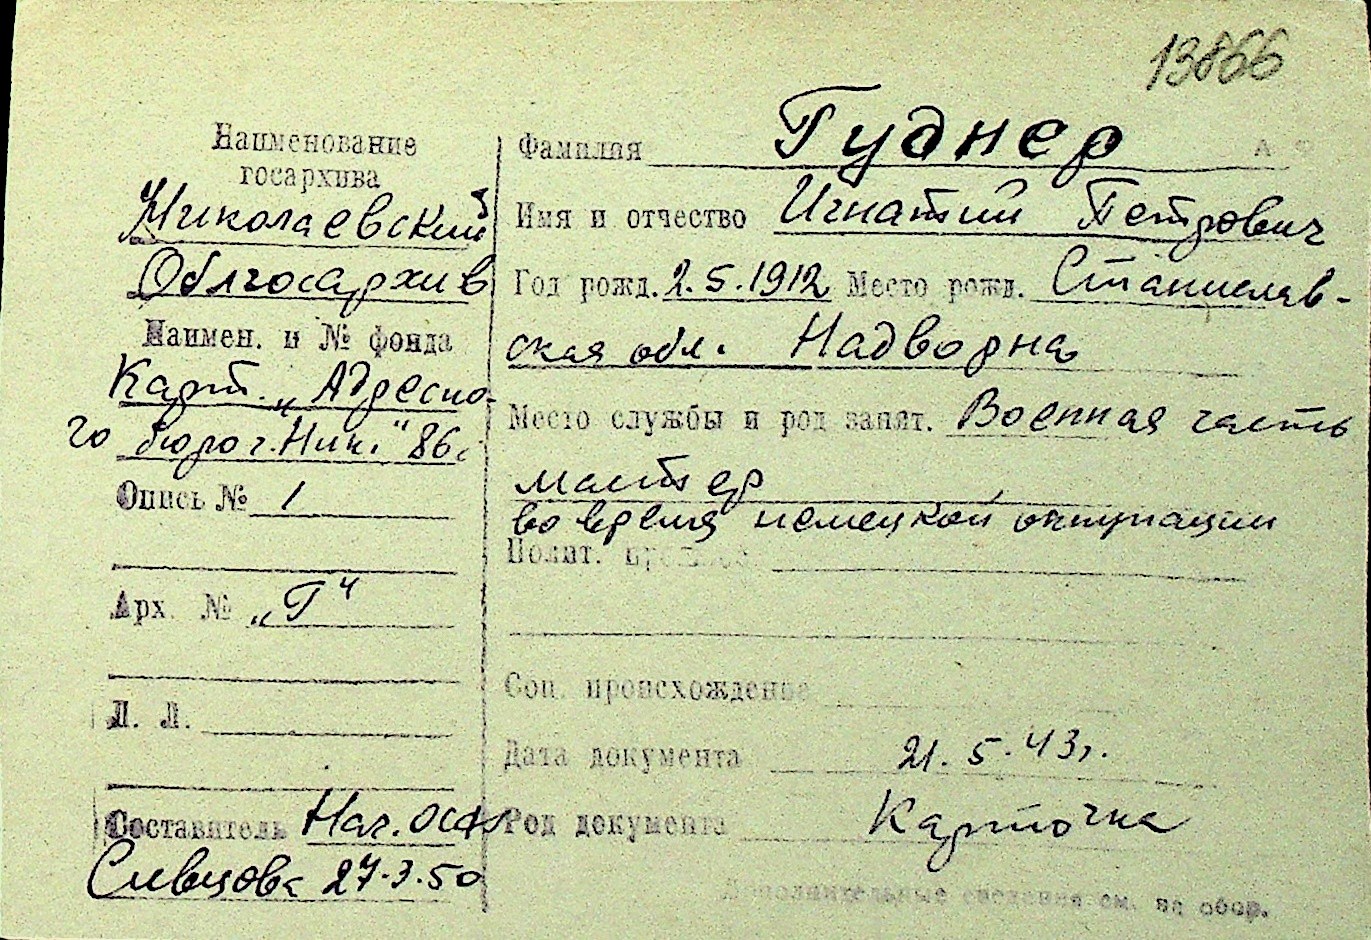 13866
Наименование
госархива
Николаевский
Облгосархив
Наимен. и № фонда
Карт. „Адресно-
го бюро г. Ник." 86
Опись № 1
Арх. № „Г"
Л. Л.
Составитель Нач. ОСФ
27.3.50
Фамилия Гуднер
Имя и отчество Игнатий Петрович
Год рожд. 2.5.1912 Место рожд. Станислав-
ская обл. Надворна
Место службы и род занят. Военная часть
мастер
во время немецкой оккупации
Полит.
Соц. происхождение
Дата документа 21.5.43г.
Род документа Карточка
Дополнительные сведения см. на обор.